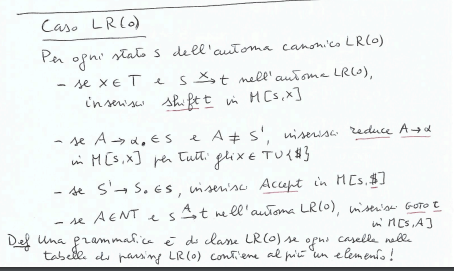 Caso LR(0)
Per ogni stato s dell'automa canonico LR(0)
- se x ∈ T e s →x t nell'automa LR(0),
inserisci shift t in M[s,x]
- se A → α. ∈ s e A ≠ S', inserisci reduce A → α
in M[s,x] per tutti gli x ∈ T ∪ {$}
- se S' → S. ∈ s, inserisci Accept in M[s,$]
- se A ∈ NT e s →A t nell'automa LR(0), inserisci GOTO t
in M[s,A]
Def Una grammatica è di classe LR(0) se ogni casella nella
tabella di parsing LR(0) contiene al più un elemento!